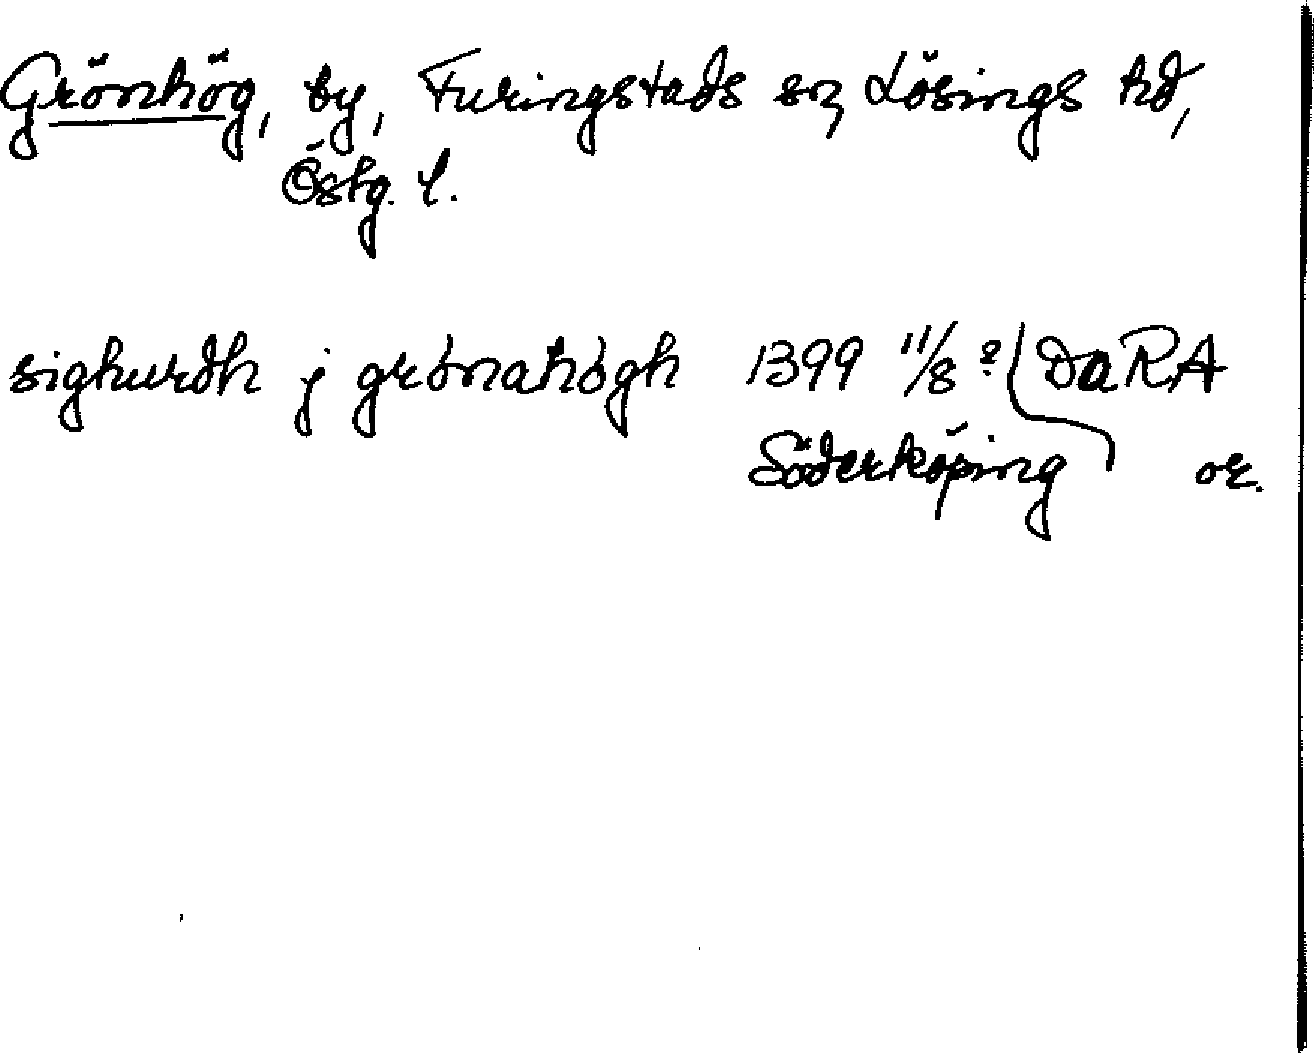 Grönhög, by, Furingstads sn, Lösings hd,
Östg. l.
sighurdh j grönahögh 1399 11/8 ? DaRA
Söderköping or.